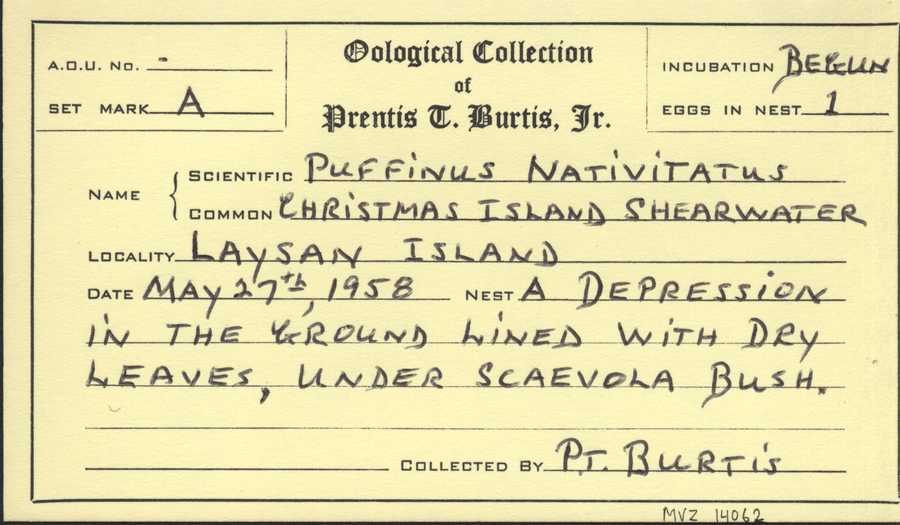 A.O.U. No. -
Oological Collection
of
Prentis T. Burtis, Jr.
INCUBATION BEGUN
SET MARK A
EGGS IN NEST 1
NAME
SCIENTIFIC PUFFINUS NATIVITATUS
COMMON CHRISTMAS ISLAND SHEARWATER
LOCALITY LAYSAN ISLAND
DATE MAY 27th, 1958 NEST A DEPRESSION
IN THE GROUND LINED WITH DRY
LEAVES, UNDER SCAEVOLA BUSH.
COLLECTED BY P.T. BURTIS
MVZ 14062